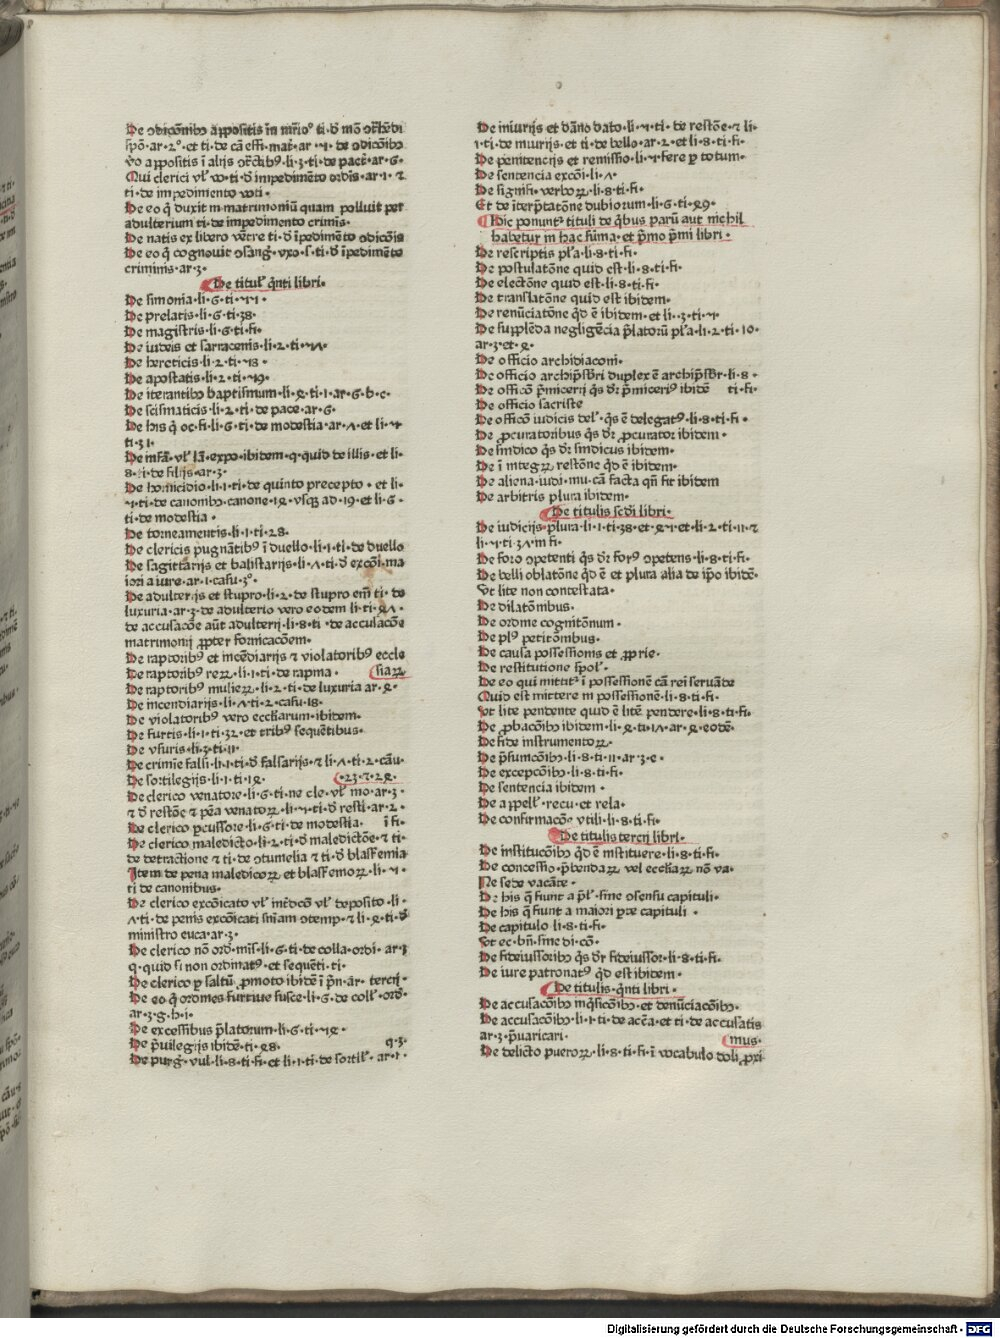 De ꝯdicōnibꝰ appositis in mr̄io° ti· d̄ mō ꝯtͬhēdi
spō· ar· 2°· et ti· de cā effi· mat̄· ar ·1· de ꝯdicōibꝰ
v̄o appositis ī alijs ꝯtͬctibꝰ·li·3·ti·de pact̄·ar·6·
Qui clerici vl̄ vo·ti·d̄ impedimēto ordīs·ar·1· ⁊
ti·de impedimento voti·
De eo q̄ duxit m matrimoniū quam polluit per
adulterium ti·de impedimento crimīs·
De natis ex libero vētre ti·d̄ īpedimēto ꝯdicōīs
De eo q̄ cognouit ꝯsāg· vxo·s·ti·d̄ īpedimēto
criminis·ar·3·
De titul̄ qͥnti libri·
De simonia·li·6·ti·11·
De prelatis·li·6·ti·38·
De magistris·li·6·ti·fi·
De iudeis et sarracenis·li·2·ti·1ʌ·
De hereticis·li·2·ti·18·
De apostatis·li·2·ti·19·
De iterantibꝰ baptismum·li·ꝝ·ti·1·ar·6·b·c·
De scismaticis·li·2·ti·de pace·ar·6·
De his q̄ oc·fi·li·6·ti·de modestia·ar·ʌ·et li·1·
ti·31·
De infā· vl̄ iā·expo·ibidem·q·quid de illis·et li·
8·ti·de filijs·ar·3·
De homicidio·li·1·ti·de quinto precepto· et li·
1·ti·de canonibꝰ·canone·1ꝝ·vsqꝫ ad·19·et li·6·
ti·de modestia·
De torneamentis·li·1·ti·28·
De clericis pugnātibꝰ ī duello·li·1·ti·de duello
De sagittarijs et balistarijs·li·ʌ·ti·d̄ excōī·ma
iori a iure·ar·1·casu·3°·
De adulterijs et stupro·li·2·de stupro em̄ ti·de
luxuria·ar·3·de adulterio vero eodem li·ti·ꝝʌ·
de accusacōe aūt adulterij·li·8·ti·de accusacōe
matrimonij ꝓpter fornicacōem·
De raptoribꝰ et incēdiarijs ⁊ violatoribꝰ eccle
De raptoribꝰ reꝝ·li·1·ti·de rapina· siaꝝ
De raptoribꝰ mulieꝝ·li·2·ti·de luxuria ar·ꝝ·
De incendiarijs·li·ʌ·ti·2·casu·18·
De violatoribꝰ vero eccliarum·ibidem·
De furtis·li·1·ti·32·et tribꝰ sequētibus·
De vsuris·li·3·ti·11·
De crimīe falsi·li·1·ti·d̄ falsarijs·⁊ li·ʌ·ti·2·cāu·
De sortilegijs·li·1·ti·1ꝝ· ·23·⁊·2ꝝ·
De clerico venatore·li·6·ti·ne cle·vl̄ mo·ar·3·
⁊ d̄ restōe ⁊ pēa venatoꝝ·li·1·ti·d̄ resti·ar·2·
De clerico ꝑcussore·li·6·ti·de modestia· ī fi·
De clerico maledicto·li·2·ti·d̄ maledictōe·⁊ ti·
de detractione ⁊ ti·de ꝯtumelia ⁊ ti·d̄ blasfemia
Item de pena maledicoꝝ et blasfemoꝝ·li·1·
ti·de canonibus·
De clerico excōicato vl̄ īn̄dcō vl̄ deposito·li·
ʌ·ti·de penis excōicati sn̄iam ꝯtemp·⁊ li·ꝝ·ti·d̄
ministro euca·ar·3·
De clerico nō ord·mīs·li·6·ti·de colla·ordi·ar·3
q·quid si non ordinatꝰ·et sequēti·ti·
De clerico ꝑ saltū ꝓmoto ibidē ī pn̄·ar·tercij·
De eo q̄ ordines furtiue susce·li·6·de coll̄·ord·
ar·3·g·h·i·
De excessibus p̄latorum·li·6·ti·1ꝝ·
De p̄uilegijs ibidē·ti·ꝝ8· q·3·
De purg·vul·li·8·ti·fi·et li·1·ti·de sortil̄·ar·1·
De iniurijs et dāno dato·li·1·ti·de restōe·⁊ li·
1·ti·de iniurijs·et ti·de bello·ar·2·et li·8·ti·fi·
De penitencijs et remissio·li·1·fere ꝑ totum·
De sentencia excōi·li·ʌ·
De signifi·verboꝝ·li·8·ti·fi·
Et de īterp̄tatōne dubiorum·li·6·ti·ꝝ9·
Hic ponunt᷑ tituli de qͥbus parū aut nichil
habetur in hac suma·et pͥmo pͥmi libri·
De rescriptis pl̄a·li·8·ti·fi·
De postulatōne quid est·li·8·ti·fi·
De electōne quid est·li·8·ti·fi·
De translatōne quid est ibidem·
De renūciatōne qͥd ē ibidem·et li·3·ti·1·
De supplēda negligēcia p̄latorū pl̄a·li·2·ti·10·
ar·3·et·ꝝ·
De officio archidiaconi·
De officio archip̄sbri duplex ē archip̄sbr̄·li·8·
De officō pͥmicerij qͥs dr̄ pͥmiceriꝰ ibidē ti·fi·
De officio sacriste
De officō iudicis del̄·qͥs ē delegatꝰ·li·8·ti·fi·
De ꝓcuratoribus qͥs dr̄ ꝓcurator ibidem·
De sindico qͥs dr̄ sindicus ibidem·
De ī integꝝ restōne qͥd ē ibidem·
De aliena·iudi·mu·cā facta qn̄ fit ibidem
De arbitris plura ibidem·
De titulis scdī libri·
De iudicijs plura·li·1·ti·38·et·ꝝ1·et·li·2·ti·11·⁊
li·1·ti·3ʌ·in fi·
De foro ꝯpetenti qͥs dr̄ forꝰ ꝯpetens·li·8·ti·fi·
De belli oblatōne qͥd ē et plura alia de ip̄o ibidē·
Vt lite non contestata·
De dilatōnibus·
De ordine cognitōnum·
De plꝰ petitōnibus·
De causa possessionis et ꝓprie·
De restitutione spol̄·
De eo qui mittit᷑ ī possessionē cā rei seruāde
Quid est mittere in possessionē·li·8·ti·fi·
Vt lite pendente quid ē litē pendere·li·8·ti·fi·
De ꝓbacōibꝰ ibidem·li·ꝝ·ti·1ʌ·ar·ꝝ·eodē·
De fide instrumentoꝝ·
De p̄sumcōibꝰ·li·8·ti·11·ar·3·e·
De excepcōibꝰ·li·8·ti·fi·
De sentencia ibidem·
De appell̄·recu·et rela·
De confirmacōe vtili·li·8·ti·fi·
De titulis tercij libri·
De institucōibꝰ qͥd ē instituere·li·8·ti·fi·
De concessio·p̄bendaꝝ vel eccliaꝝ nō va·
Ne sede vacāte·
De his q̄ fiunt a pl̄·sine ꝯsensu capituli·
De his q̄ fiunt a maiori ꝑte capituli·
De capitulo li·8·ti·fi·
Vt ec·bn̄·sine di·cō·
De fideiussoribꝰ qͥs dr̄ fideiussor·li·8·ti·fi·
De iure patronatꝰ qͥd est ibidem·
De titulis·qͥnti libri·
De accusacōibꝰ inqͥsicōibꝰ·et denūciacōibꝰ·
De accusacōibꝰ·li·1·ti·de acēa·et ti·de accusatis
ar·3·p̄uaricari· mus·
De delicto pueroꝝ·li·8·ti·fi·ī vocabulo doli ꝓxi
Digitalisierung gefördert durch die Deutsche Forschungsgemeinschaft - DFG